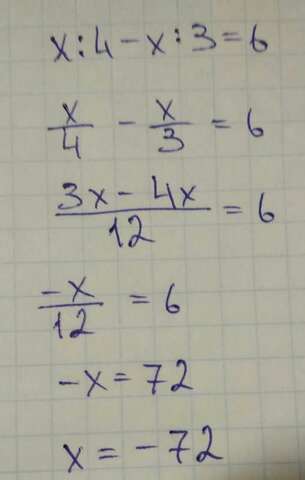 x:4-x:3=6
x/4 - x/3 = 6
(3x-4x)/12 = 6
-x/12 = 6
-x=72
x=-72